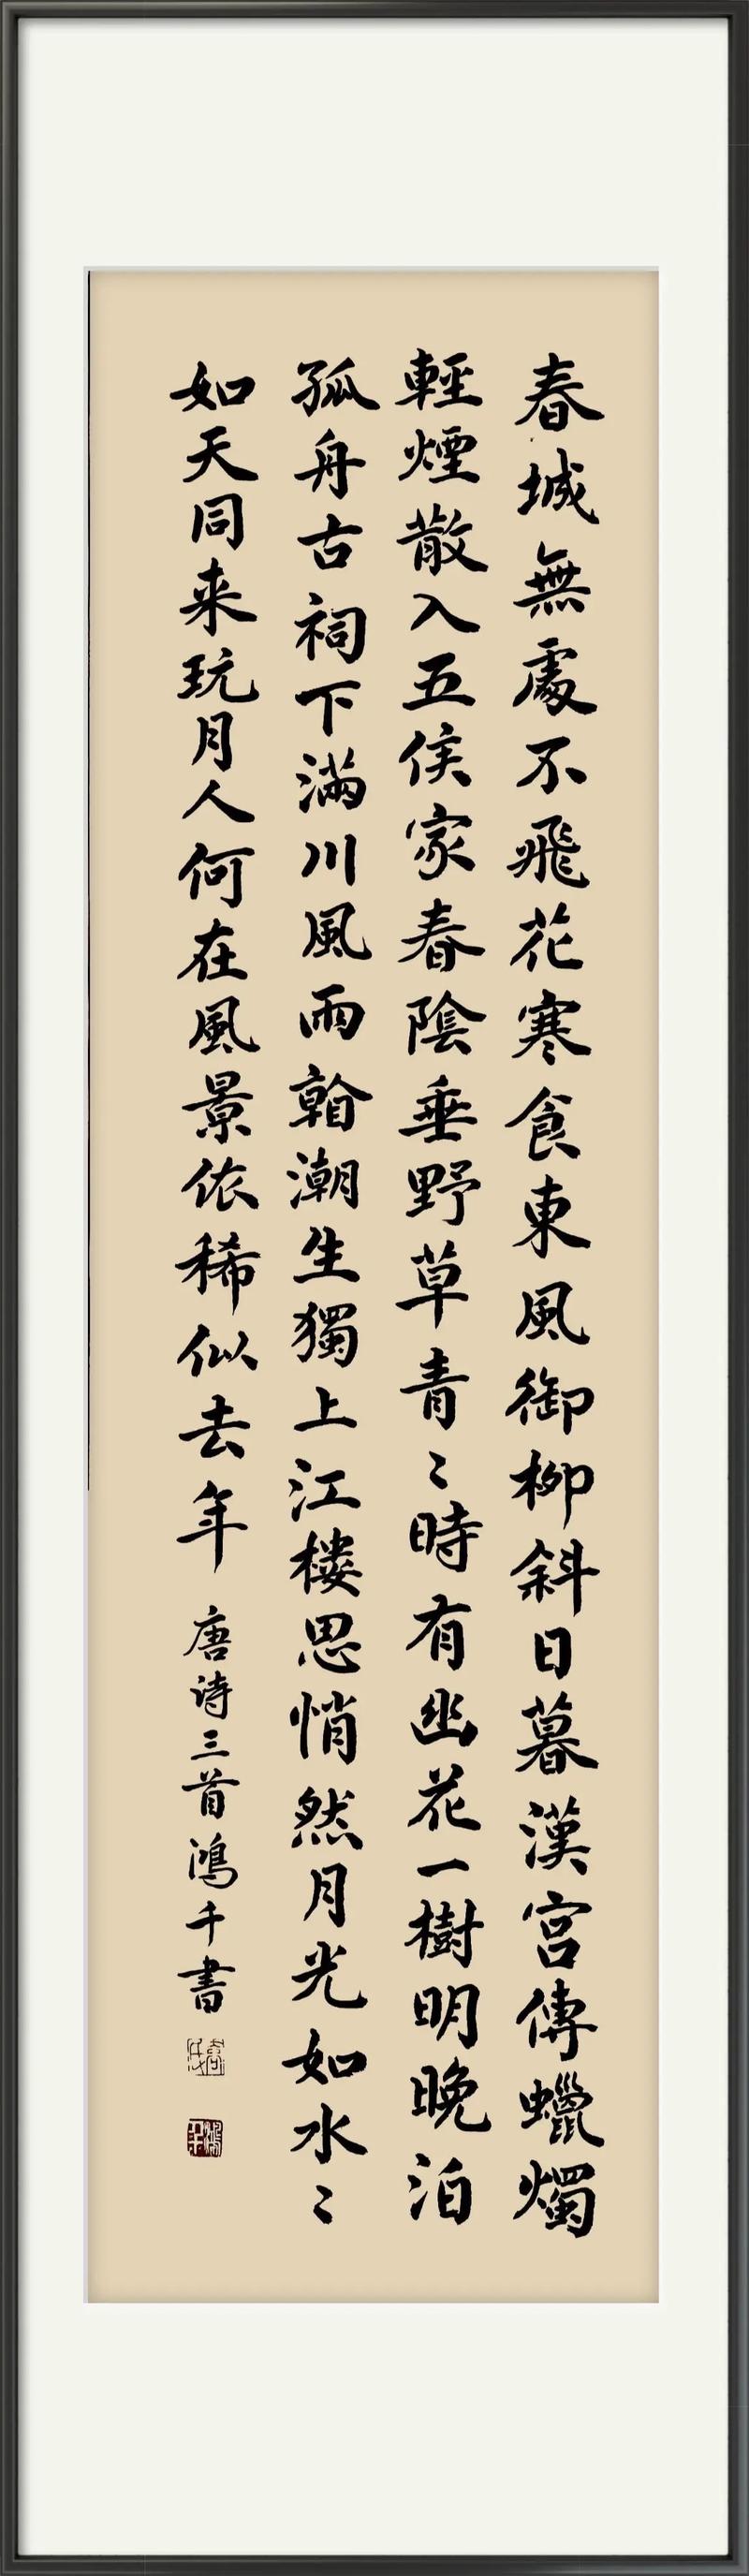 春城無處不飛花寒食東風御柳斜日暮漢宮傳蠟燭
輕煙散入五侯家春陰垂野草青〻時有幽花一樹明晚泊
孤舟古祠下滿川風雨看潮生獨上江樓思悄然月光如水〻
如天同来玩月人何在風景依稀似去年
唐诗三首鴻千書